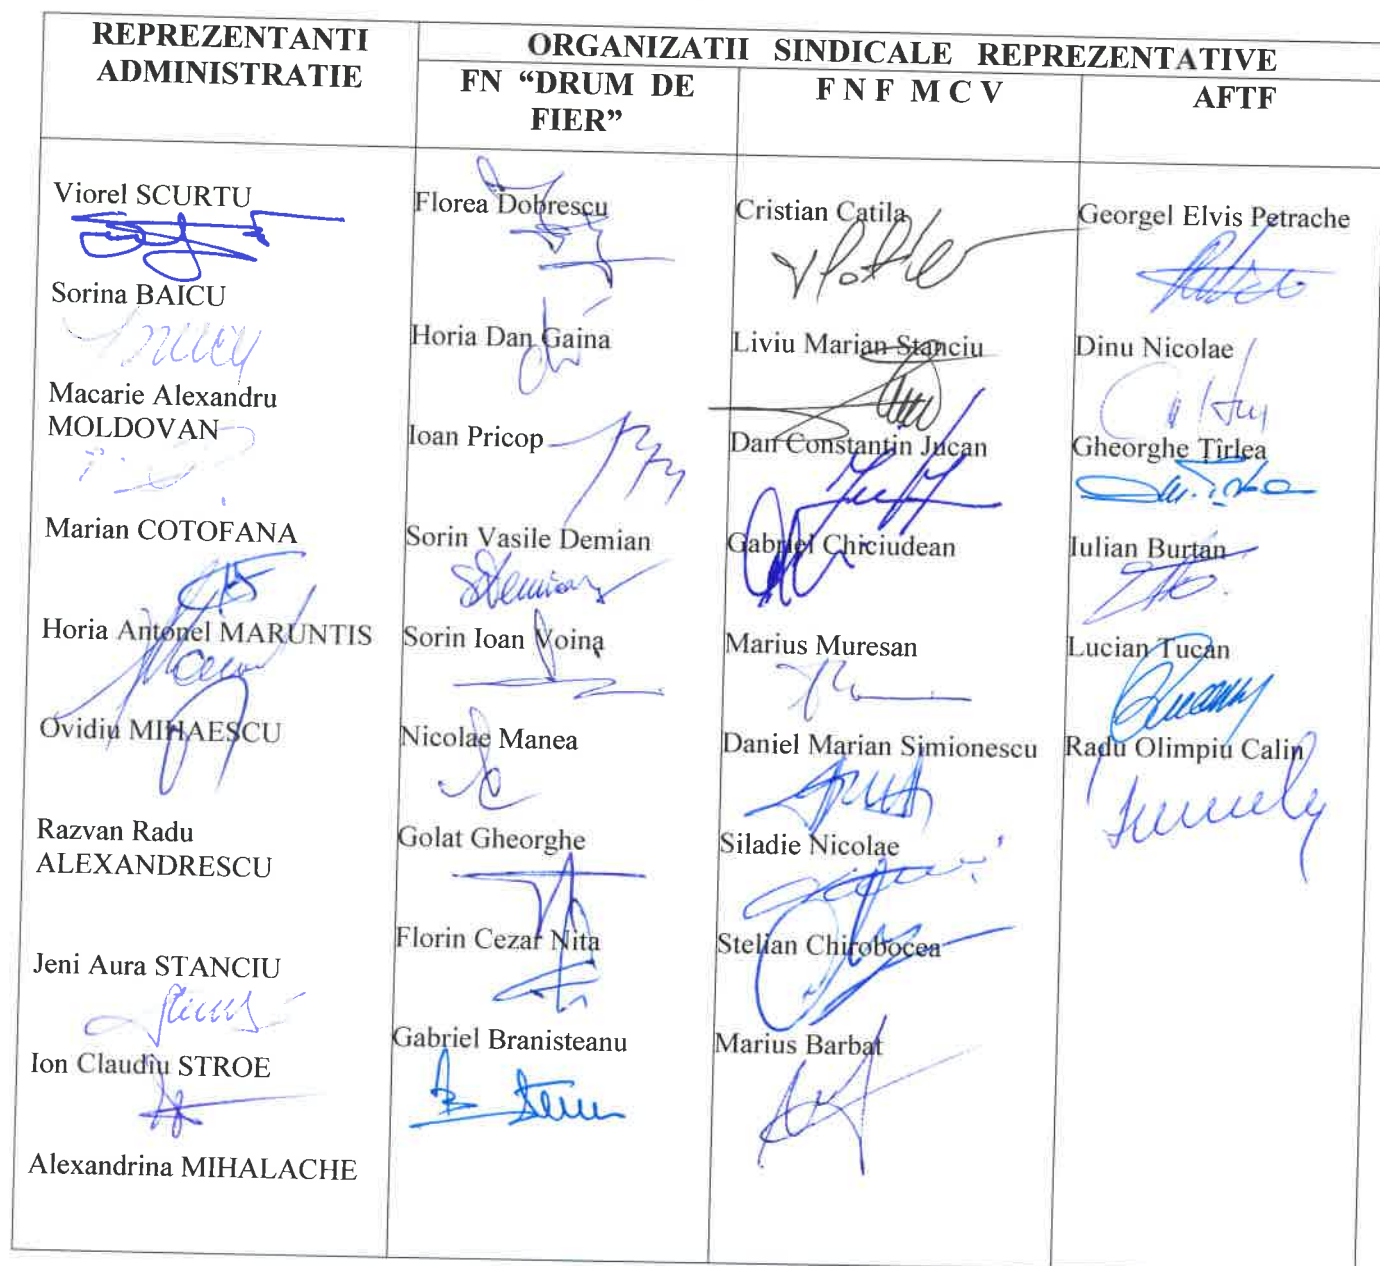 REPREZENTANTI
ADMINISTRATIE
ORGANIZATII SINDICALE REPREZENTATIVE
FN “DRUM DE
FIER”
F N F M C V
AFTF
Viorel SCURTU
Sorina BAICU
Macarie Alexandru
MOLDOVAN
Marian COTOFANA
Horia Antonel MARUNTIS
Ovidiu MIHAESCU
Razvan Radu
ALEXANDRESCU
Jeni Aura STANCIU
Ion Claudiu STROE
Alexandrina MIHALACHE
Florea Dobrescu
Horia Dan Gaina
Ioan Pricop
Sorin Vasile Demian
Sorin Ioan Voina
Nicolae Manea
Golat Gheorghe
Florin Cezar Nita
Gabriel Branisteanu
Cristian Catila
Liviu Marian Stanciu
Dan Constantin Jucan
Gabriel Chiciudean
Marius Muresan
Daniel Marian Simionescu
Siladie Nicolae
Stelian Chirobocea
Marius Barbat
Georgel Elvis Petrache
Dinu Nicolae
Gheorghe Tîrlea
Iulian Burtan
Lucian Tucan
Radu Olimpiu Calin